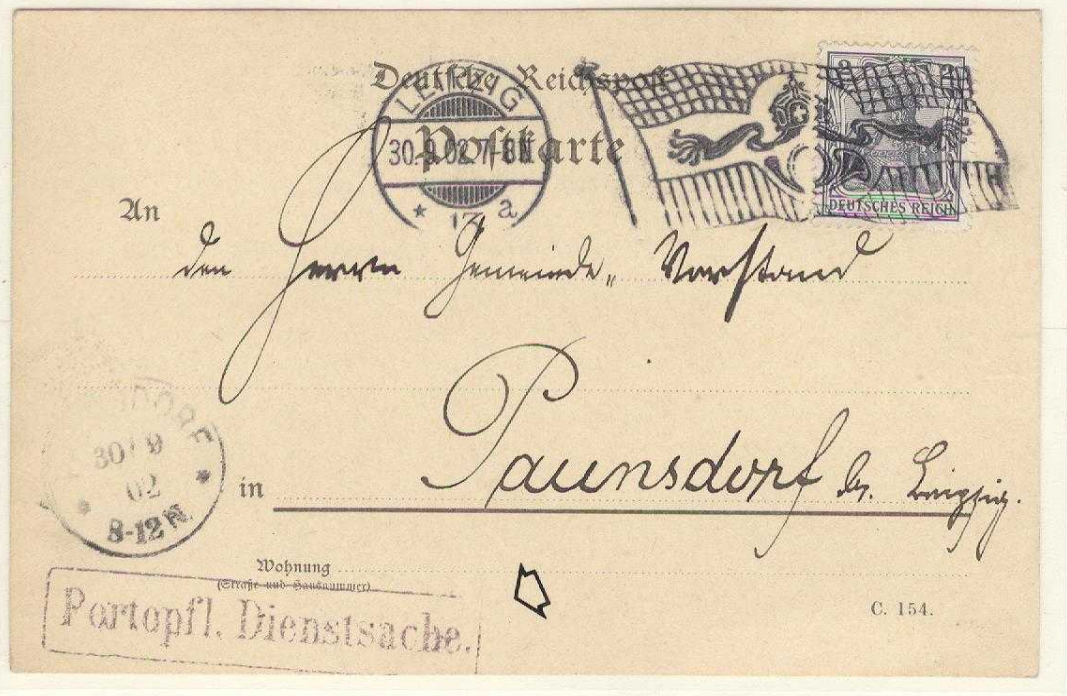 Deutsche Reichspost
Postkarte
LEIPZIG
30.9.02.7-8N
* 13 a
2 2
DEUTSCHES REICH
An
den Herrn Gemeinde-Vorstand
in Paunsdorf bs. Leipzig.
DORF
30/9
02
8-12 N
Wohnung
(Straße und Hausnummer)
Portopfl. Dienstsache.
C. 154.